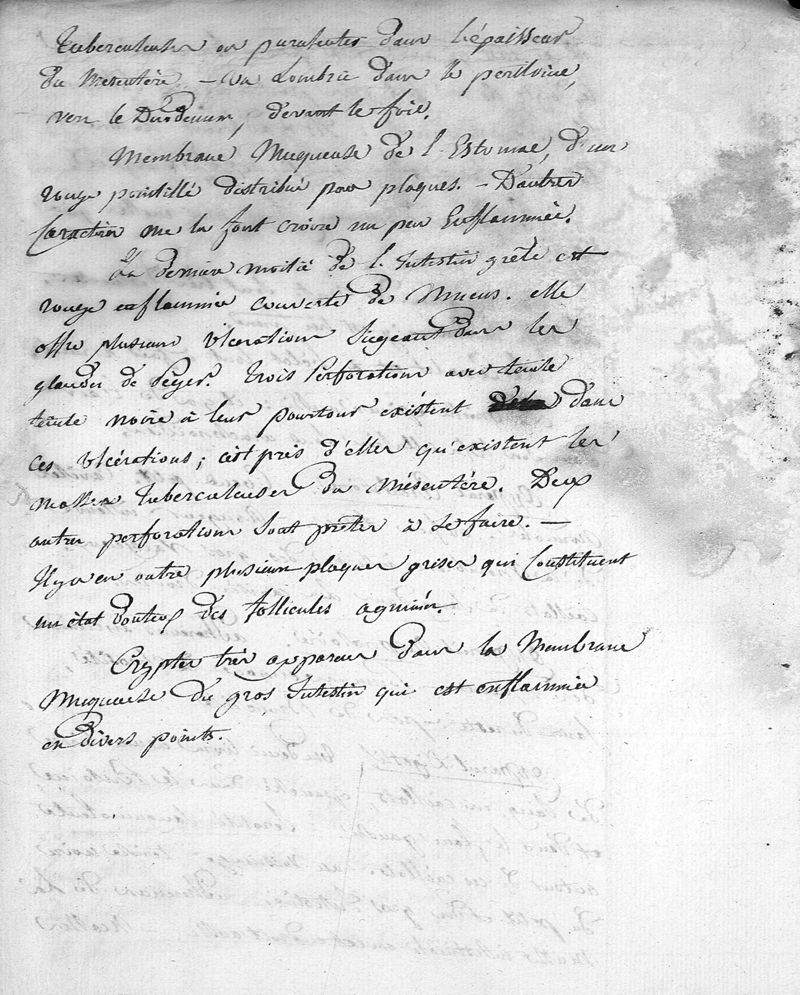 tuberculeuses ou purulentes dans l'épaisseur
du Mésentère. — un Lombric dans le péritoine,
vers le Duodenum, devant le foie.
Membrane Muqueuse de l'Estomac, d'un
rouge pointillé distribué par plaques. — D'autres
Caractères me la font croire un peu Enflammée.
La dernière moitié de l'Intestin grêle est
rouge enflammée couverte de Mucus. elle
offre plusieurs Ulcérations Siégeant dans les
glandes de Peyer. trois Perforations avec teinte
teinte noire à leur pourtour existent dans
ces Ulcérations; c'est près d'elles qu'existent les
masses tuberculeuses du mésentère. Deux
autres perforations sont prêtes à se faire. —
Il y a en outre plusieurs plaques grises qui Constituent
un état des follicules agminés.
Cryptes très apparens dans la Membrane
Muqueuse du gros Intestin qui est enflammée
en divers points.